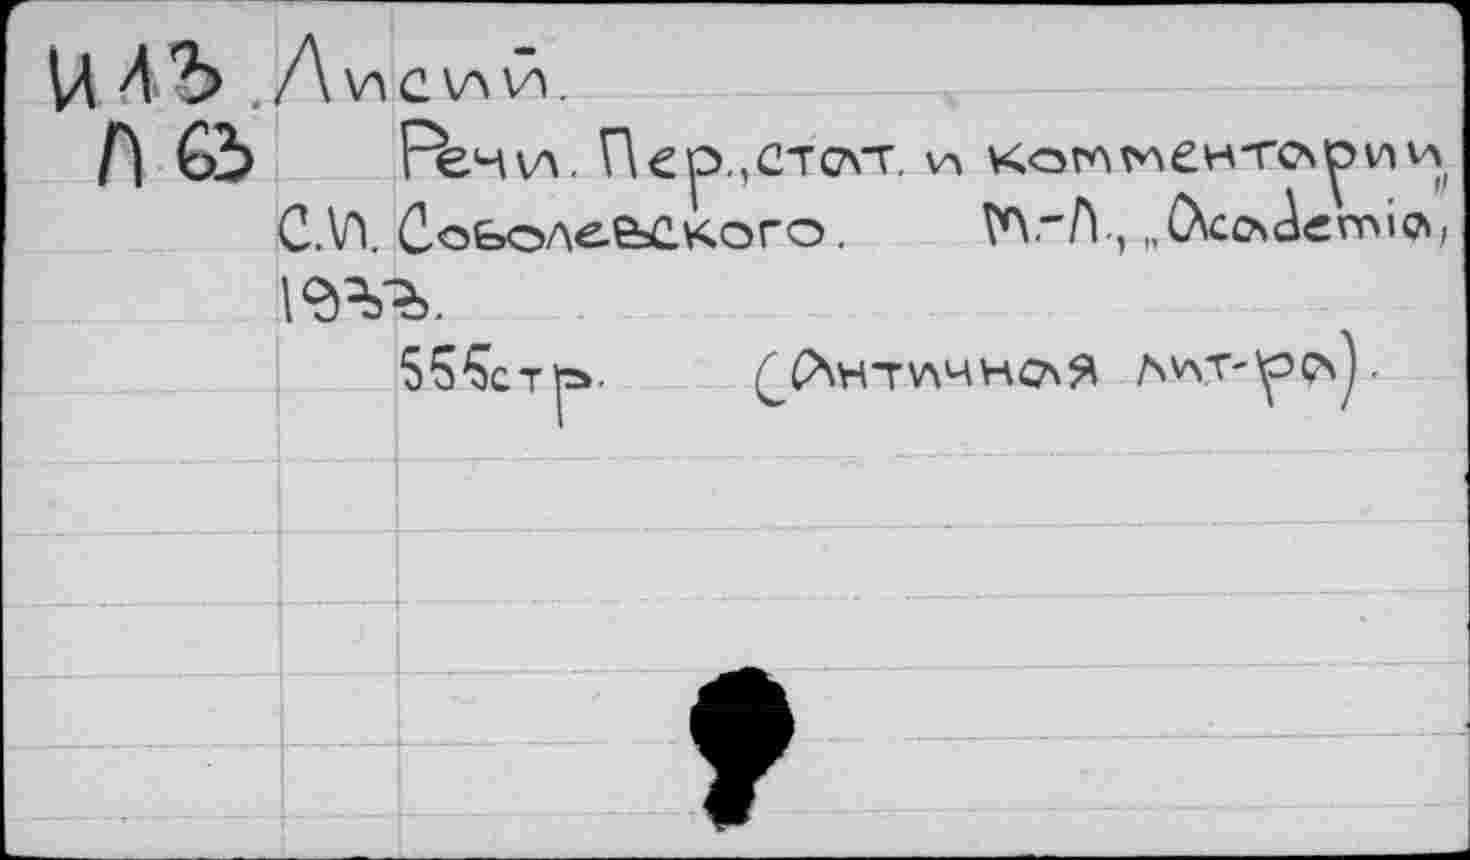 И 13 Лисий.
Л 63 Речи. Пер., стат. и комментарии
С.И. Соболевского. М.-Л., „Academia",
1933.
555стр. (Античная лит-ра).